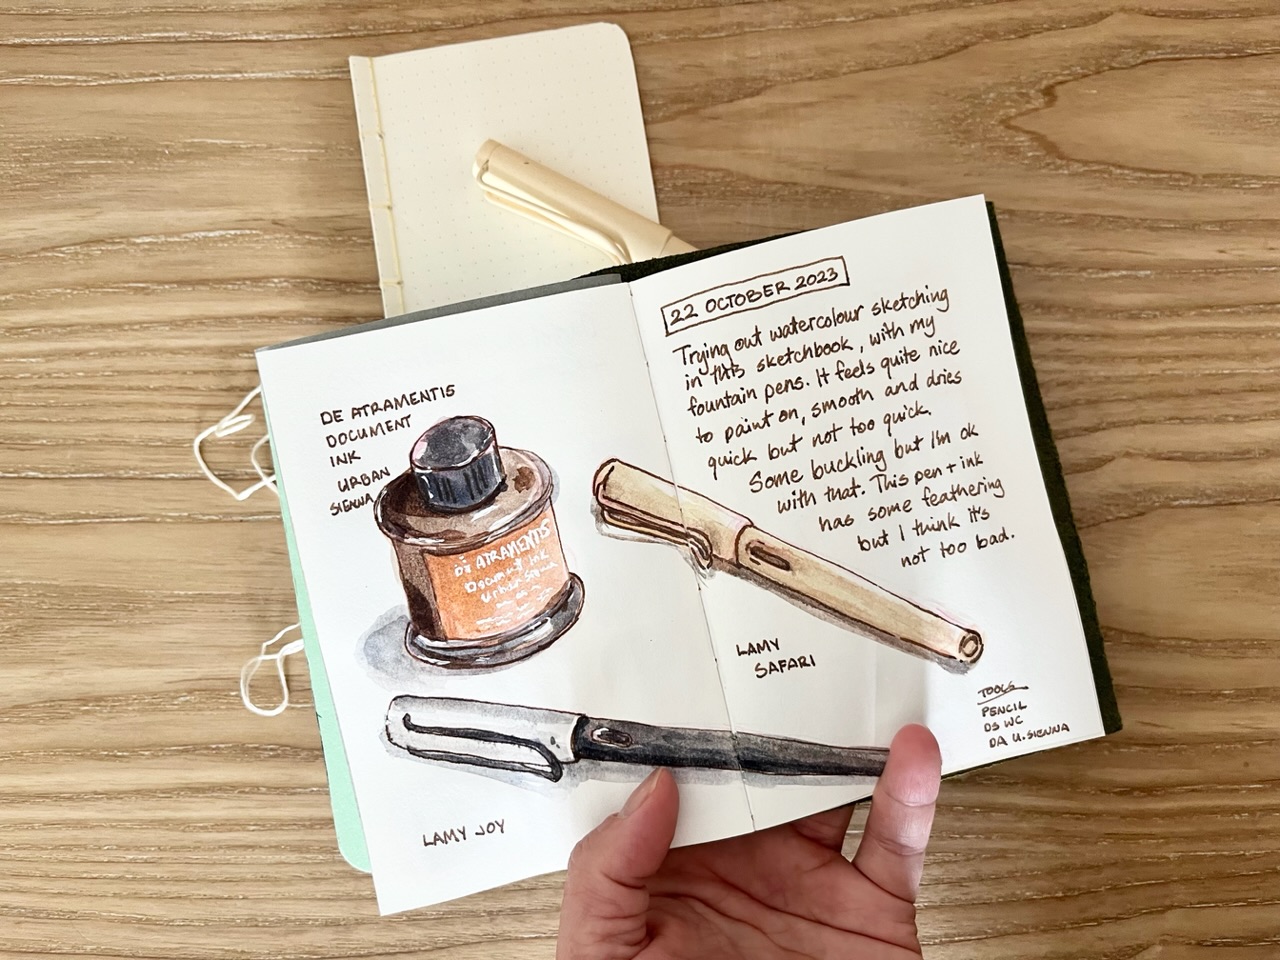 DE ATRAMENTIS
DOCUMENT
INK
URBAN
SIENNA
DE ATRAMENTIS
Document Ink
Urban Sienna
LAMY JOY
22 OCTOBER 2023
Trying out watercolour sketching
in this sketchbook, with my
fountain pens. It feels quite nice
to paint on, smooth and dries
quick but not too quick.
Some buckling but I'm ok
with that. This pen + ink
has some feathering
but I think it's
not too bad.
LAMY
SAFARI
TOOLS
PENCIL
DS WC
DA U.SIENNA